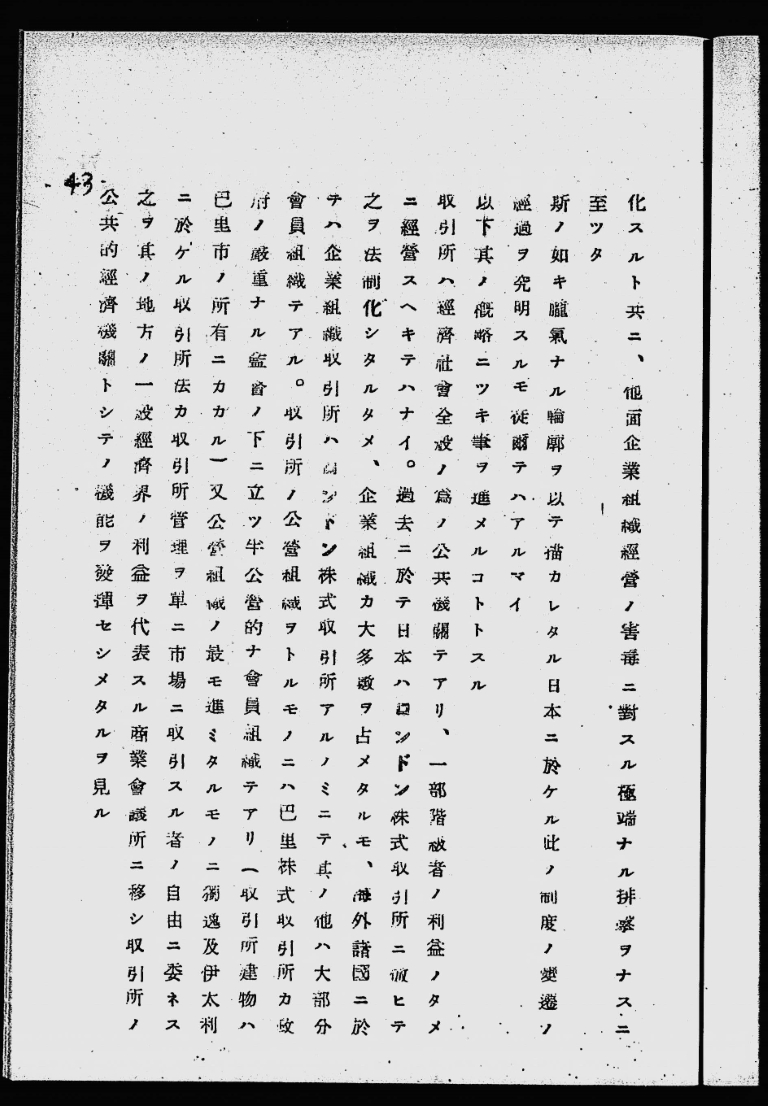 化スルト共ニ、他面企業組織經營ノ害毒ニ對スル極端ナル排擊ヲナスニ
至ツタ
斯ノ如キ朧氣ナル輪廓ヲ以テ描カレタル日本ニ於ケル此ノ制度ノ變遷ノ
經過ヲ究明スルモ徒爾テハアルマイ
以下其ノ概略ニツキ筆ヲ進メルコトトスル
取引所ハ經濟社會全般ノ爲ノ公共機關テアリ、一部階級者ノ利益ノタメ
ニ經營スヘキテハナイ。過去ニ於テ日本ハロンドン株式取引所ニ倣ヒテ
之ヲ法制化シタルタメ、企業組織カ大多數ヲ占メタルモ、海外諸國ニ於
テハ企業組織取引所ハロンドン株式取引所アルノミニテ其ノ他ハ大部分
會員組織テアル。取引所ノ公營組織ヲトルモノニハ巴里株式取引所カ政
府ノ嚴重ナル監督ノ下ニ立ツ半公營的ナ會員組織テアリ（取引所建物ハ
巴里市ノ所有ニカカル）又公營組織ノ最モ進ミタルモノニ獨逸及伊太利
ニ於ケル取引所法カ取引所管理ヲ單ニ市場ニ取引スル者ノ自由ニ委ネス
之ヲ其ノ地方ノ一般經濟界ノ利益ヲ代表スル商業會議所ニ移シ取引所ノ
公共的經濟機關トシテノ機能ヲ發揮セシメタルヲ見ル
43